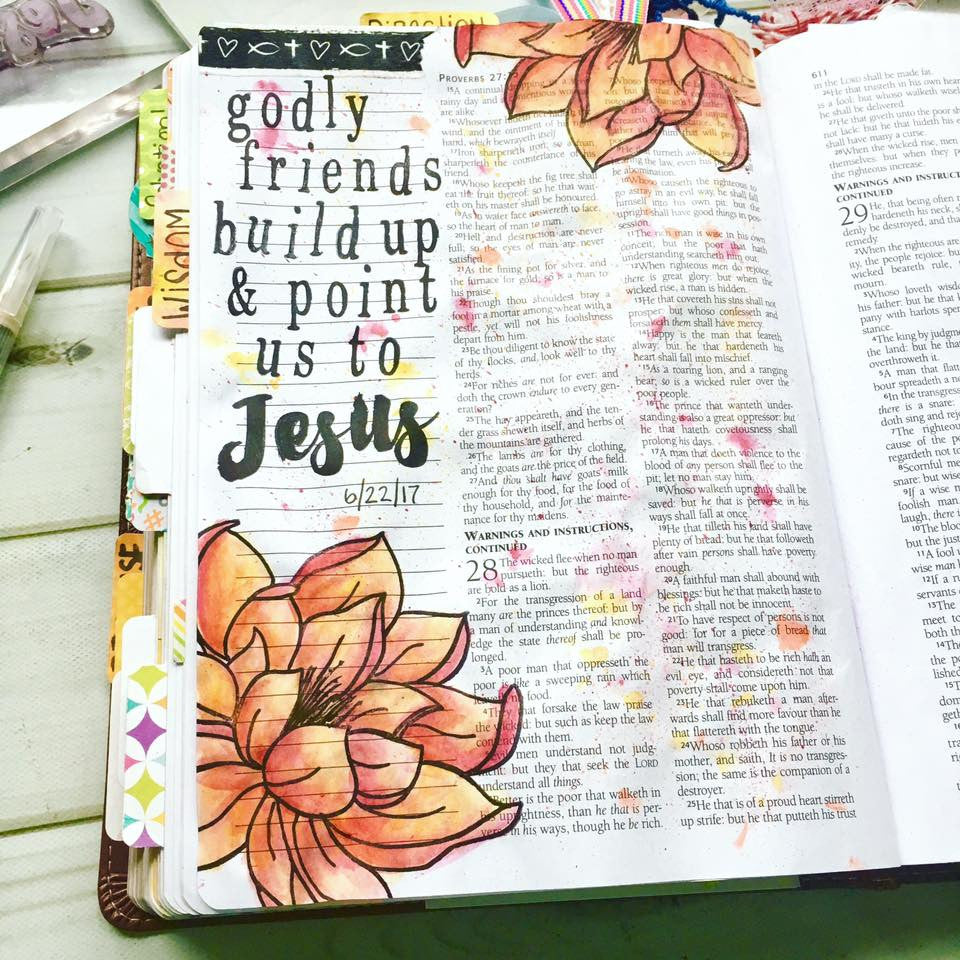 Direction
Identity
WISDOM
godly
friends
build up
& point
us to
Jesus
6/22/17
PROVERBS 27:
15A continual
rainy day and
are alike.
16Whosoever
wind, and the ointment of
hand, which bewrayeth itself.
17Iron sharpeneth iron; so a man
sharpeneth the countenance of his
friend.
18Whoso keepeth the fig tree shall
eat the fruit thereof: so he that wait-
eth on his master shall be honoured.
19As in water face answereth to face,
so the heart of man to man.
20Hell and destruction are never
full; so the eyes of man are never
satisfied.
21As the fining pot for silver, and
the furnace for gold; so is a man to
his praise.
22Though thou shouldest bray a
fool in a mortar among wheat with a
pestle, yet will not his foolishness
depart from him.
23Be thou diligent to know the state
of thy flocks, and look well to thy
herds.
24For riches are not for ever: and
doth the crown endure to every gen-
eration?
25The hay appeareth, and the ten-
der grass sheweth itself, and herbs of
the mountains are gathered.
26The lambs are for thy clothing,
and the goats are the price of the field.
27And thou shalt have goats' milk
enough for thy food, for the food of
thy household, and for the mainte-
nance for thy maidens.
WARNINGS AND INSTRUCTIONS,
CONTINUED
28 The wicked flee when no man
pursueth: but the righteous
are bold as a lion.
2For the transgression of a land
many are the princes thereof: but by
a man of understanding and knowl-
edge the state thereof shall be pro-
longed.
3A poor man that oppresseth the
poor is like a sweeping rain which
leaveth no food.
4They that forsake the law praise
the wicked: but such as keep the law
contend with them.
5Evil men understand not judg-
ment: but they that seek the LORD
understand all things.
6Better is the poor that walketh in
his uprightness, than he that is per-
verse in his ways, though he be rich.
7Whoso keepeth the
law, even his
be abomination.
10Whoso causeth the righteous to
go astray in an evil way, he shall fall
himself into his own pit: but the
upright shall have good things in pos-
session.
11The rich man is wise in his own
conceit; but the poor that hath
understanding searcheth him out.
12When righteous men do rejoice,
there is great glory: but when the
wicked rise, a man is hidden.
13He that covereth his sins shall not
prosper: but whoso confesseth and
forsaketh them shall have mercy.
14Happy is the man that feareth
alway: but he that hardeneth his
heart shall fall into mischief.
15As a roaring lion, and a ranging
bear; so is a wicked ruler over the
poor people.
16The prince that wanteth under-
standing is also a great oppressor: but
he that hateth covetousness shall
prolong his days.
17A man that doeth violence to the
blood of any person shall flee to the
pit; let no man stay him.
18Whoso walketh uprightly shall be
saved: but he that is perverse in his
ways shall fall at once.
19He that tilleth his land shall have
plenty of bread: but he that followeth
after vain persons shall have poverty
enough.
20A faithful man shall abound with
blessings: but he that maketh haste to
be rich shall not be innocent.
21To have respect of persons is not
good: for for a piece of bread that
man will transgress.
22He that hasteth to be rich hath an
evil eye, and considereth not that
poverty shall come upon him.
23He that rebuketh a man after-
wards shall find more favour than he
that flattereth with the tongue.
24Whoso robbeth his father or his
mother, and saith, It is no transgres-
sion; the same is the companion of a
destroyer.
25He that is of a proud heart stirreth
up strife: but he that putteth his trust
611
in the LORD shall be made fat.
26He that trusteth in his own heart
is a fool: but whoso walketh wisely,
he shall be delivered.
27He that giveth unto the poor shall
not lack: but he that hideth his
shall have many a curse.
28When the wicked rise, men
themselves: but when they
the righteous increase.
WARNINGS AND INSTRUC
CONTINUED
29 He, that being often r
hardeneth his neck, sh
denly be destroyed, and tha
remedy.
2When the righteous are
ity, the people rejoice: but
wicked beareth rule,
mourn.
3Whoso loveth wisdo
his father: but he that k
pany with harlots spen
stance.
4The king by judgme
the land: but he that
overthroweth it.
5A man that flatt
bour spreadeth a n
6In the transgress
there is a snare:
doth sing and rejoi
7The righteou
cause of the po
regardeth not to
8Scornful me
snare: but wise
9If a wise m
foolish man.
laugh, there i
10The blood
but the just
11A fool u
wise man
12If a ru
servants
13The
meet to
both th
14T